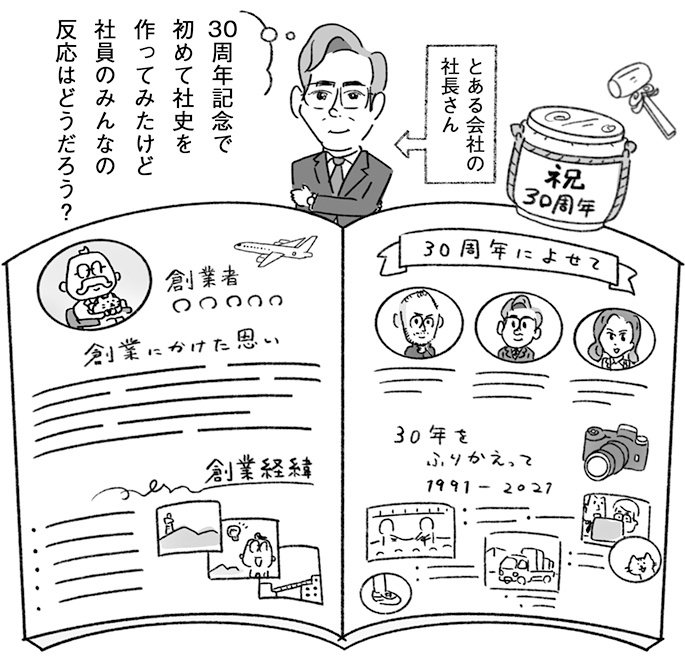 30周年記念で
初めて社史を
作ってみたけど
社員のみんなの
反応はどうだろう？
とある会社の
社長さん
祝
30周年
創業者
○○○○○
創業にかけた思い
創業経緯
30周年によせて
30年を
ふりかえって
1991－2021